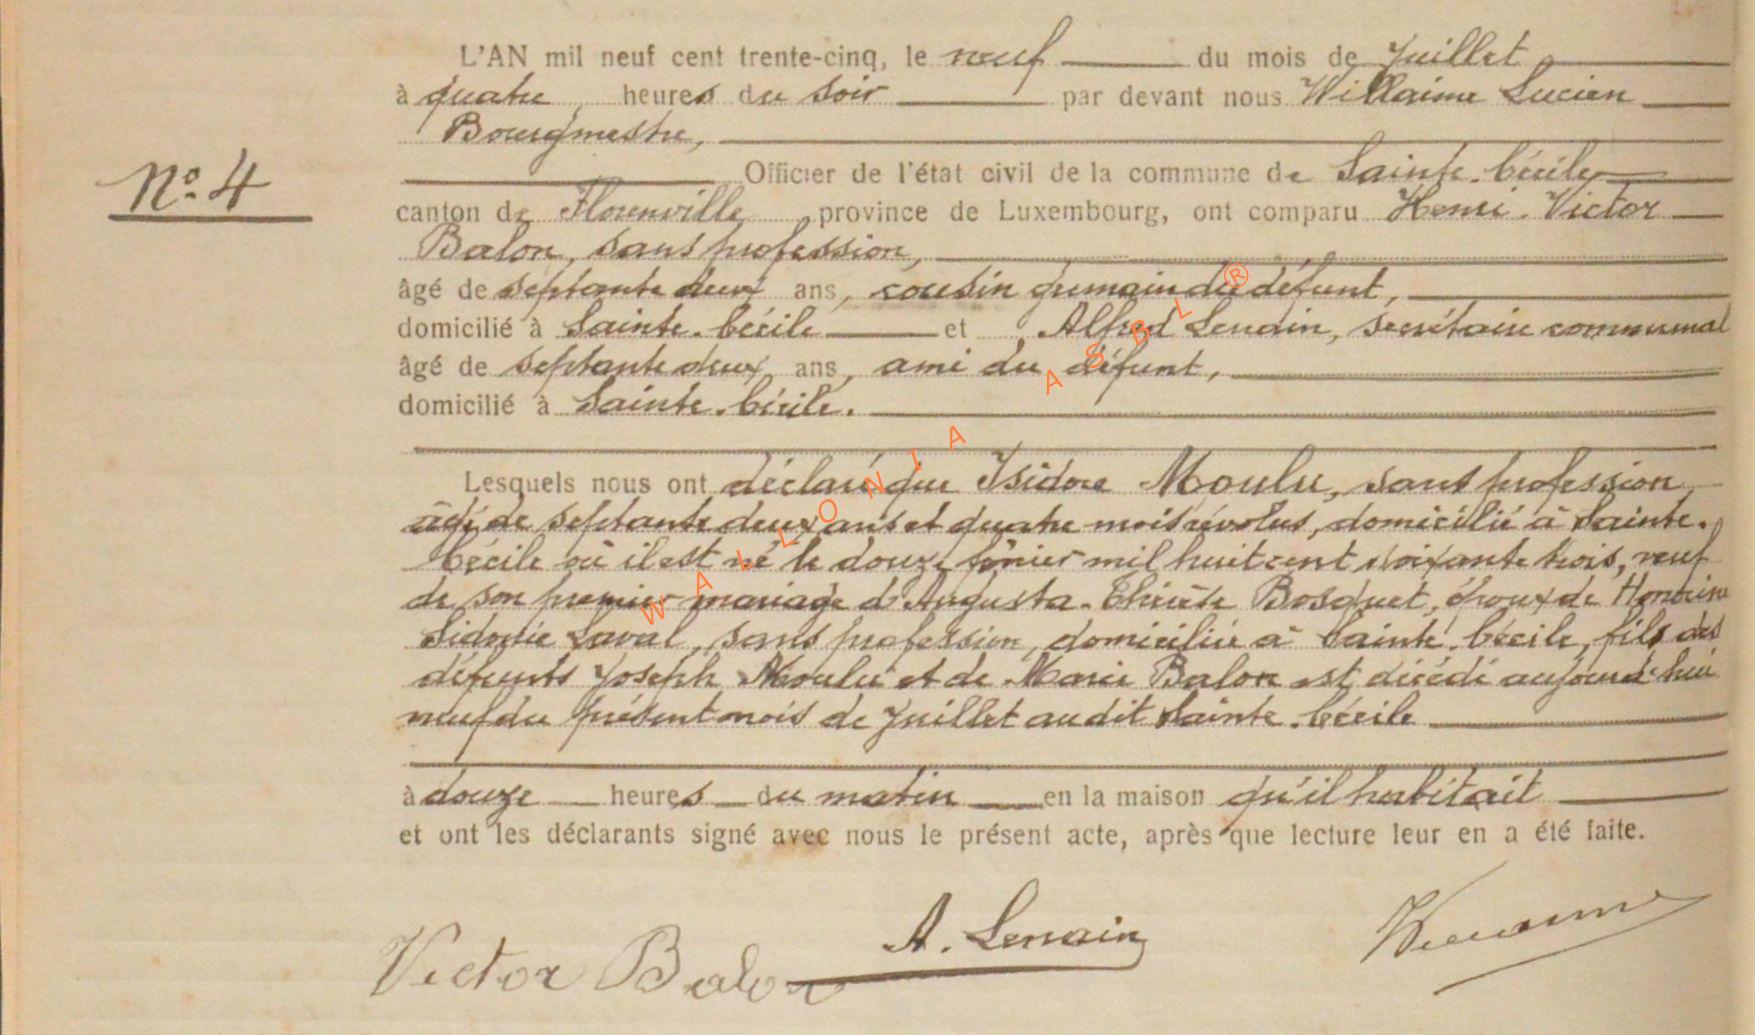 L'AN mil neuf cent trente-cinq, le neuf du mois de Juillet
à quatre heures du soir par devant nous Willaime Lucien
Bourgmestre,
Officier de l'état civil de la commune de Sainte-Cécile
N° 4
canton de Florenville, province de Luxembourg, ont comparu Henri-Victor
Balon, sans profession,
âgé de septante deux ans, cousin germain du défunt,
domicilié à Sainte-Cécile et Alfred Lenain, secrétaire communal
âgé de septante deux ans, ami du défunt,
domicilié à Sainte-Cécile.
Lesquels nous ont déclaré que Isidore Moulu, sans profession
âgé de septante deux ans et quatre mois révolus, domicilié à Sainte-
Cécile où il est né le douze février mil huit cent soixante trois, veuf
de son premier mariage d'Augusta-Thérèse Bosquet, époux de Honorine
Sidonie Laval, sans profession, domiciliée à Sainte-Cécile, fils des
défunts Joseph Moulu et de Marie Balon est décédé aujourd'hui
neuf du présent mois de Juillet audit Sainte-Cécile
à douze heures du matin en la maison qu'il habitait
et ont les déclarants signé avec nous le présent acte, après que lecture leur en a été faite.
Victor Balon
A. Lenain
Willaime
WALLONIA ASBL ®